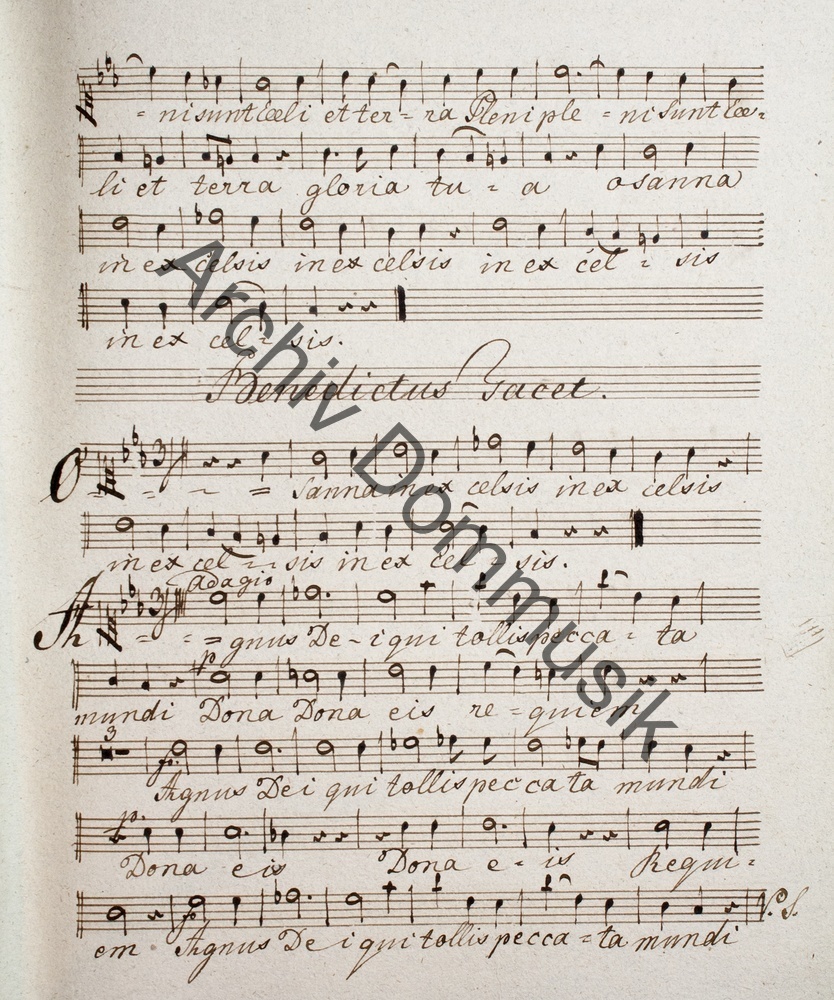 = ni sunt Coeli et ter = ra Pleni ple = ni sunt Coe =
li et terra gloria tu = a osanna
in ex celsis in ex celsis in ex cel = sis
in ex cel = sis.
Benedictus Tacet.
O = = = sanna in ex celsis in ex celsis
in ex cel = = sis in ex cel = sis.
adagio
A = = = gnus De - i qui tollis pecca = ta
p
mundi Dona Dona eis re = quiem
3
Agnus Dei qui tollis peccata mundi
p.
Dona eis Dona e = is Requi =
em Agnus De i qui tollis pecca = ta mundi
V. S.
Archiv Dommusik